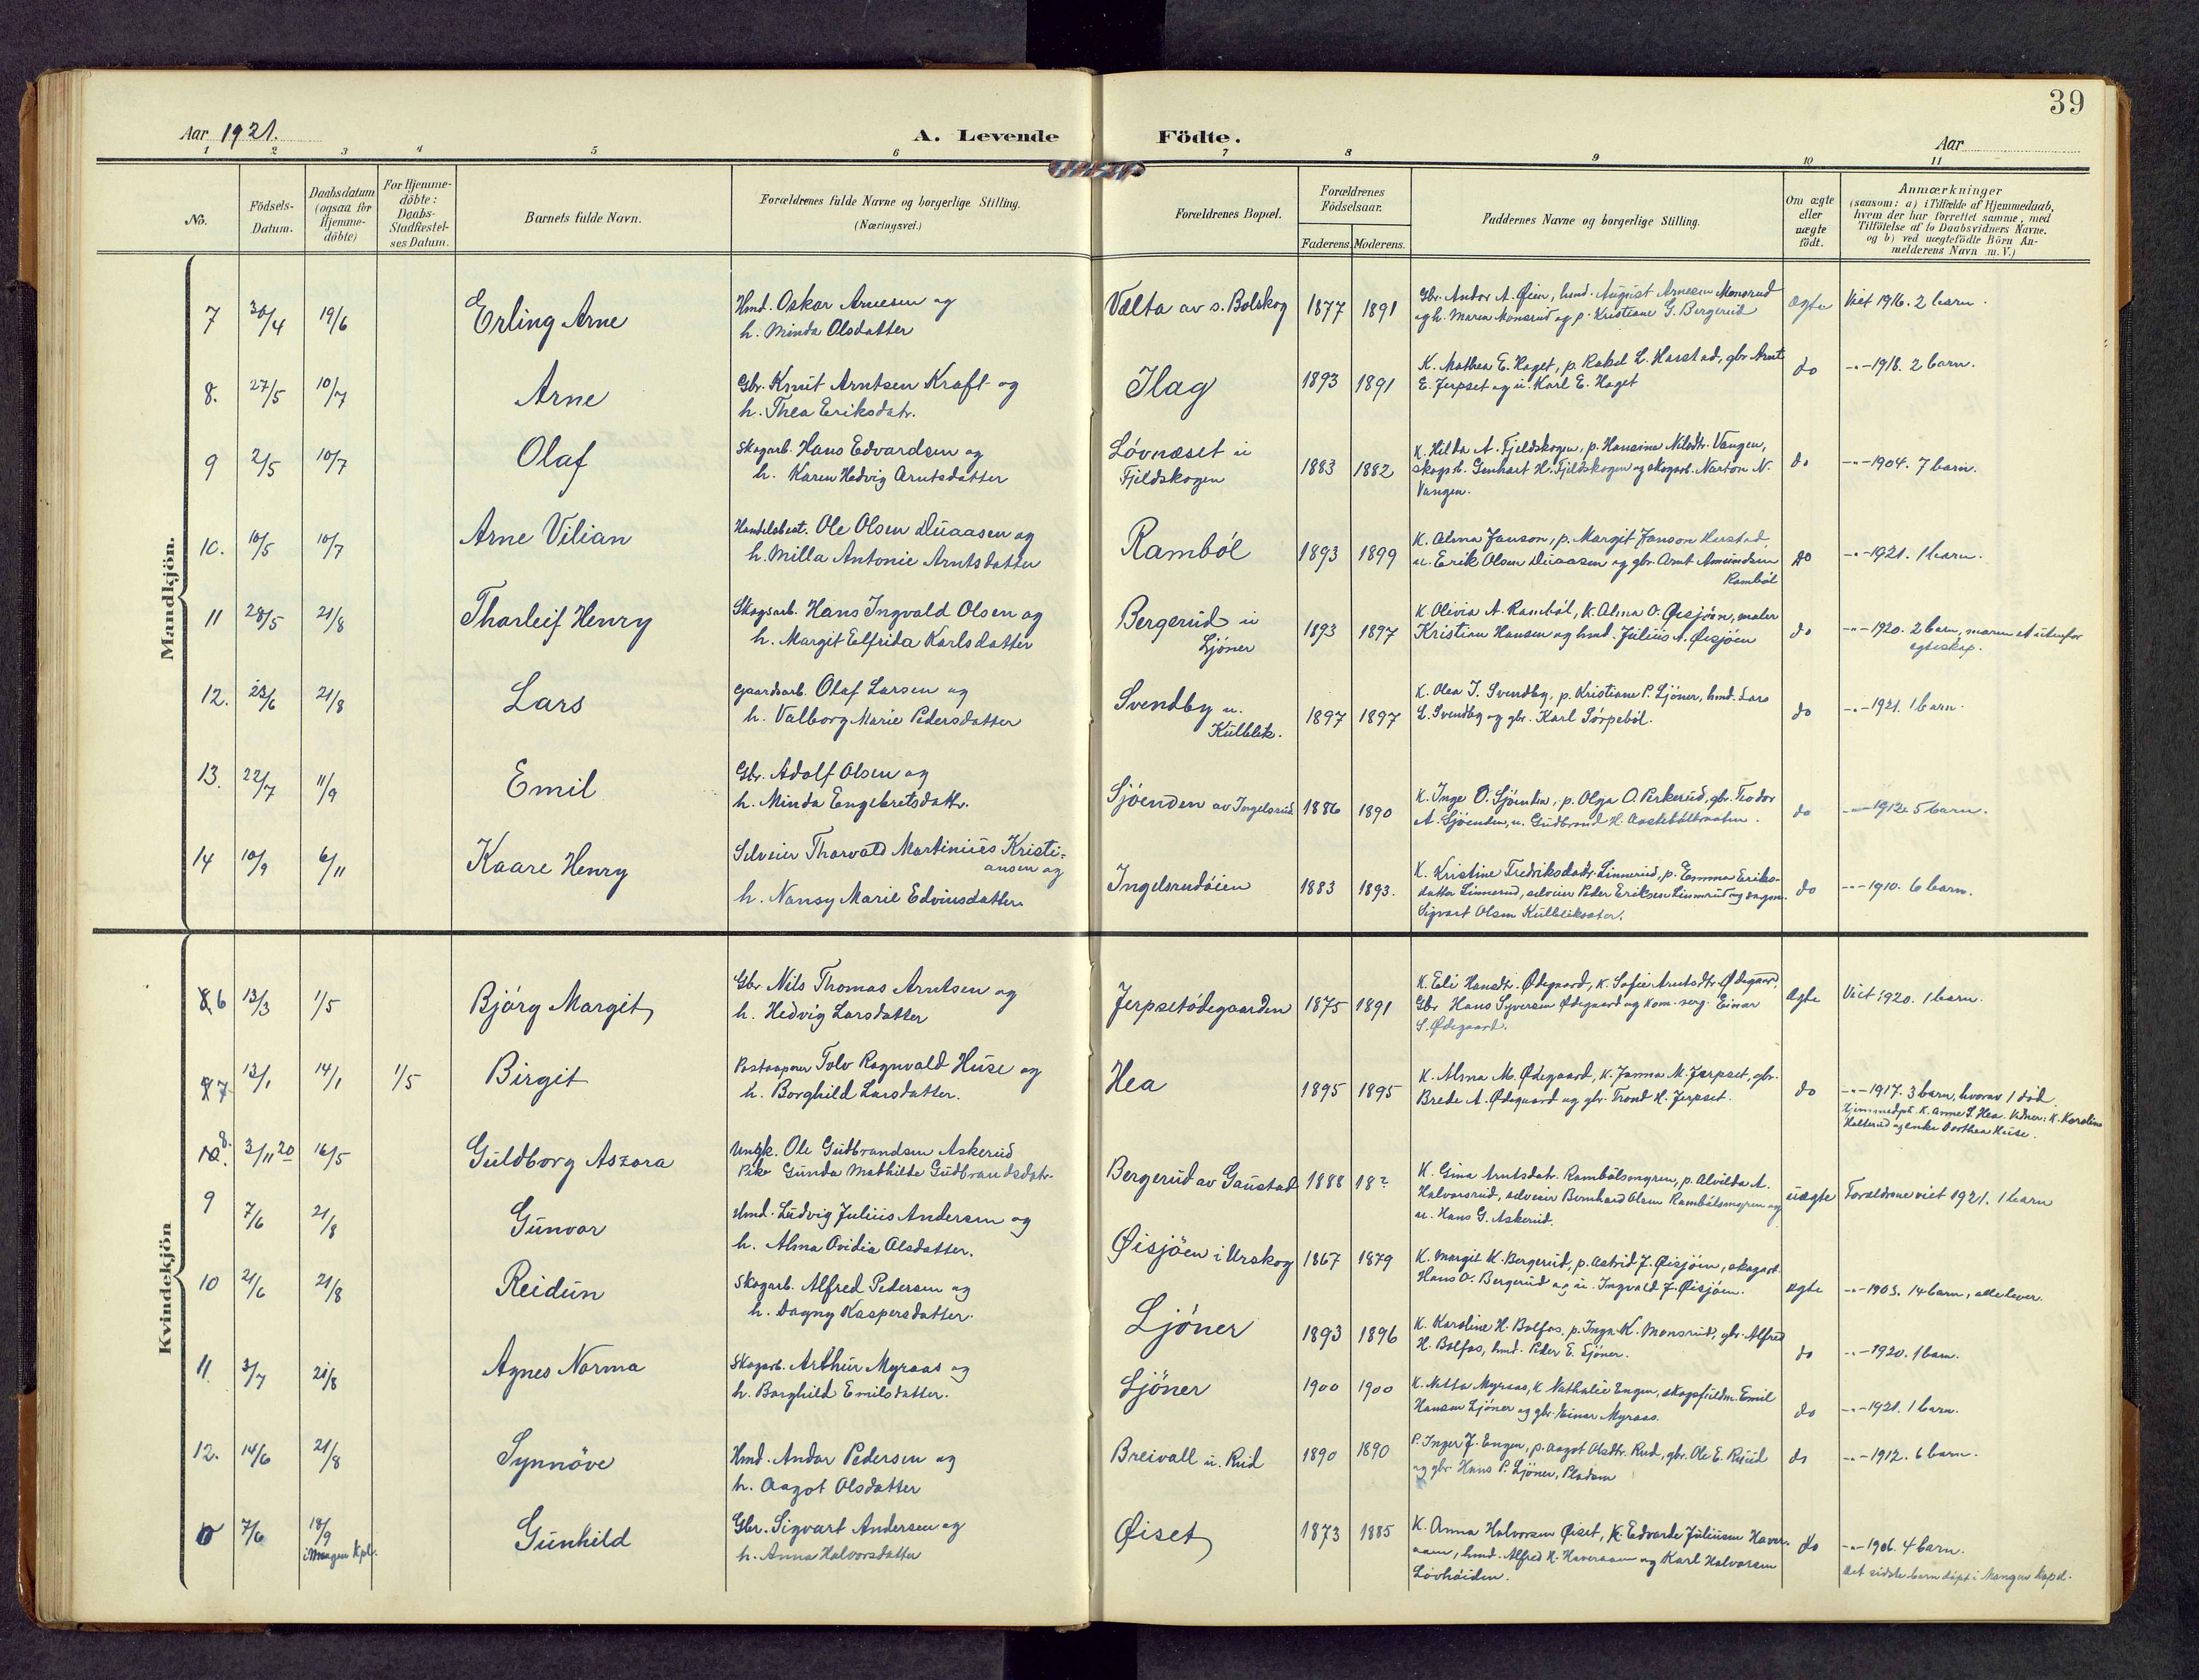 39
Aar 1921.
A. Levende Födte.
Aar
1 2 3 4 5 6 7 8 9 10 11
No.
Födsels-
Datum.
Daabsdatum
(ogsaa for
Hjemme-
döbte)
For Hjemme-
döbte:
Daabs-
Stadfæstel-
ses Datum.
Barnets fulde Navn.
Forældrenes fulde Navne og borgerlige Stilling.
(Næringsvei.)
Forældrenes Bopæl.
Forældrenes
Födselsaar.
Faderens. Moderens.
Faddernes Navne og borgerlige Stilling.
Om ægte
eller
uægte
födt.
Anmærkninger
(saasom: a) i Tilfælde af Hjemmedaab,
hvem der har forrettet samme, med
Tilföielse af to Daabsvidners Navne.
og b) ved uægtefödte Börn An-
melderens Navn m. V.)
Mandkjön.
7 30/4 19/6 Erling Arne
Hmd. Oskar Arnesen og
h. Minda Olsdatter
Vælta av s. Bolskog 1877 1891
Gbr. Andor A. Øien, hmd. August Arnesen Monsrud
og h. Maren Monsrud og p. Kristiane G. Bergerud
ægte Viet 1916. 2 barn.
8. 27/5 10/7 Arne
Gbr. Knut Arntsen Kraft og
h. Thea Eriksdatr.
Ilag 1893 1891
K. Mathea E. Haget, p. Rakel L. Harstad, gbr. Arnt
E. Jerpset og u. Karl E. Haget
do -"- 1918. 2 barn.
9 2/5 10/7 Olaf
Skogarb. Hans Edvardsen og
h. Karen Hedvig Arntsdatter
Lövnæset u
Fjeldskogen
1883 1882
K. Hilda A. Fjeldskogen, p. Hansine Nilsdtr. Vangen,
skogarb. Genhart H. Fjeldskogen og skogarb. Narton N.
Vangen.
do -"- 1904. 7 barn.
10. 10/5 10/7 Arne Vilian
Handelsbest. Ole Olsen Duaasen og
h. Milla Antonie Arntsdatter
Ramböl 1893 1899
K. Alma Janson, p. Margit Janson Herstad
u. Erik Olsen Duaasen og gbr. Arnt Amundsen
Ramböl
do -"- 1921. 1 barn.
11 28/5 21/8 Thorleif Henry
Skogsarb. Hans Ingvald Olsen og
h. Margit Elfrida Karlsdatter
Bergerud u
Ljöner
1893 1897
K. Olivia A. Ramböl, K. Alma O. Øisjöen, maler
Kristian Hansen og hmd. Julius A. Øisjöen
do -"- 1920. 2 barn, moren et utenfor
egteskap.
12. 23/6 21/8 Lars
Gaardsarb. Olaf Larsen og
h. Valborg Marie Pedersdatter
Svendby u.
Kulblik.
1897 1897
K. Olea J. Svendby, p. Kristiane P. Ljöner, hmd. Lars
L. Svendby og gbr. Karl Törpeböl.
do -"- 1921. 1 barn.
13. 22/7 11/9 Emil
Gbr. Adolf Olsen og
h. Minda Engebretsdattr.
Sjöenden av Ingelsrud 1886 1890
K. Inge O. Sjöenden, p. Olga O. Perkerud, gbr. Teodor
A. Sjöenden, u. Gudbrand H.
do -"- 1912. 5 barn.
14 10/9 6/11 Kaare Henry
Selveier Thorvald Martinius Kristi=
ansen og
h. Nansy Marie Edvinsdatter.
Ingelsrudöien 1883 1893.
K. Kristine Fredriksdatr. Linnerud, p. Emma Eriks-
datter Linnerud, selveier Peder Eriksen Linnerud og
Sigvart Olsen Kulbliksæter.
do -"- 1910. 6 barn.
Kvindekjön
6 13/3 1/5 Bjørg Margit
Gbr Nils Thomas Arntsen og
h. Hedvig Larsdatter
Jerpsetödegaarden 1875 1891
K. Eli Hansdtr. Ødegaard, K. Sofie Arntsdtr Ødegaard,
Gbr Hans Syversen Ødegaard og Kom. serg. Einar
S. Ødegaard.
Ægte Viet 1920. 1 barn.
7 13/1 14/1 1/5 Birgit
Postaapner Tolv Ragnvald Huse og
h. Borghild Larsdatter.
Hea 1895 1895
K. Alma M. Ødegaard, K. Janna M. Jerpset, gbr.
Brede A. Ødegaard og gbr. Trond H. Jerpset.
do -"- 1917. 3 barn, hvorav 1 död.
Hjemmedpt. K. Anne S. Hea. Vidner: K. Karoline
Halterud og enke Dorthea Huse.
8. 3/11 20 16/5 Guldborg Aszora
Ungk. Ole Gudbrandsen Askerud
Pike Gunda Mathilde Gudbrandsdatr.
Bergerud av Gaustad 1888 18?
K. Gina Arntsdatr. Rambölsmyren, p. Alvilda A.
Halvorsrud, selveier Bernhard Olsen Rambölsmyren og
u. Hans G. Askerud.
uægte Forældrene viet 1921. 1 barn
9 7/6 21/8 Gunvor
Hmd. Ludvig Julius Andersen og
h. Alma Ovidia Olsdatter.
Øisjöen i Urskog 1867 1879
K. Margit K. Bergerud, p. Astrid J. Øisjöen, skogarb.
Hans O. Bergerud og u. Ingvald J. Øisjöen.
ægte -"- 1903. 14 barn, alle lever.
10 21/6 21/8 Reidun
Skogarb. Alfred Pedersen og
h. Dagny Kaspersdatter.
Ljöner 1893 1896
K. Karoline H. Bolfos, p. Inga K. Monsrud, gbr. Alfred
H. Bolfos, hmd. Peder E. Ljöner.
do -"- 1920. 1 barn.
11 3/7 21/8 Agnes Norma
Skogarb. Arthur Myraas og
h. Borghild Emilsdatter.
Ljöner 1900 1900
K. Netta Myraas, K Nathalie Engen, skogsfuldm. Emil
Hansen Ljöner og gbr. Einar Myraas.
do -"- 1921. 1 barn.
12. 14/6 21/8 Synnöve
Hmd. Andor Pedersen og
h. Aagot Olsdatter
Breivall u. Rud 1890 1890
P. Inger J. Engen, p. Aagot Olsdtr. Rud, gbr. Ole E. Ruud
og gbr Hans P. Ljöner,
do -"- 1912. 6 barn.
7/6 18/9
i Mangen Kpl.
Gunhild
Gbr. Sigvart Andersen og
h. Anna Halvorsdatter
Øiset 1873 1885
K. Anna Halvorsen Øiset, K. Edvarda Juliusen Haver-
aaen, hmd. Alfred H. Haveraaen og Karl Halvorsen
Lövhöiden.
do -"- 1906. 4 barn.
Det sidste barn döpt i Mangen Kapel.